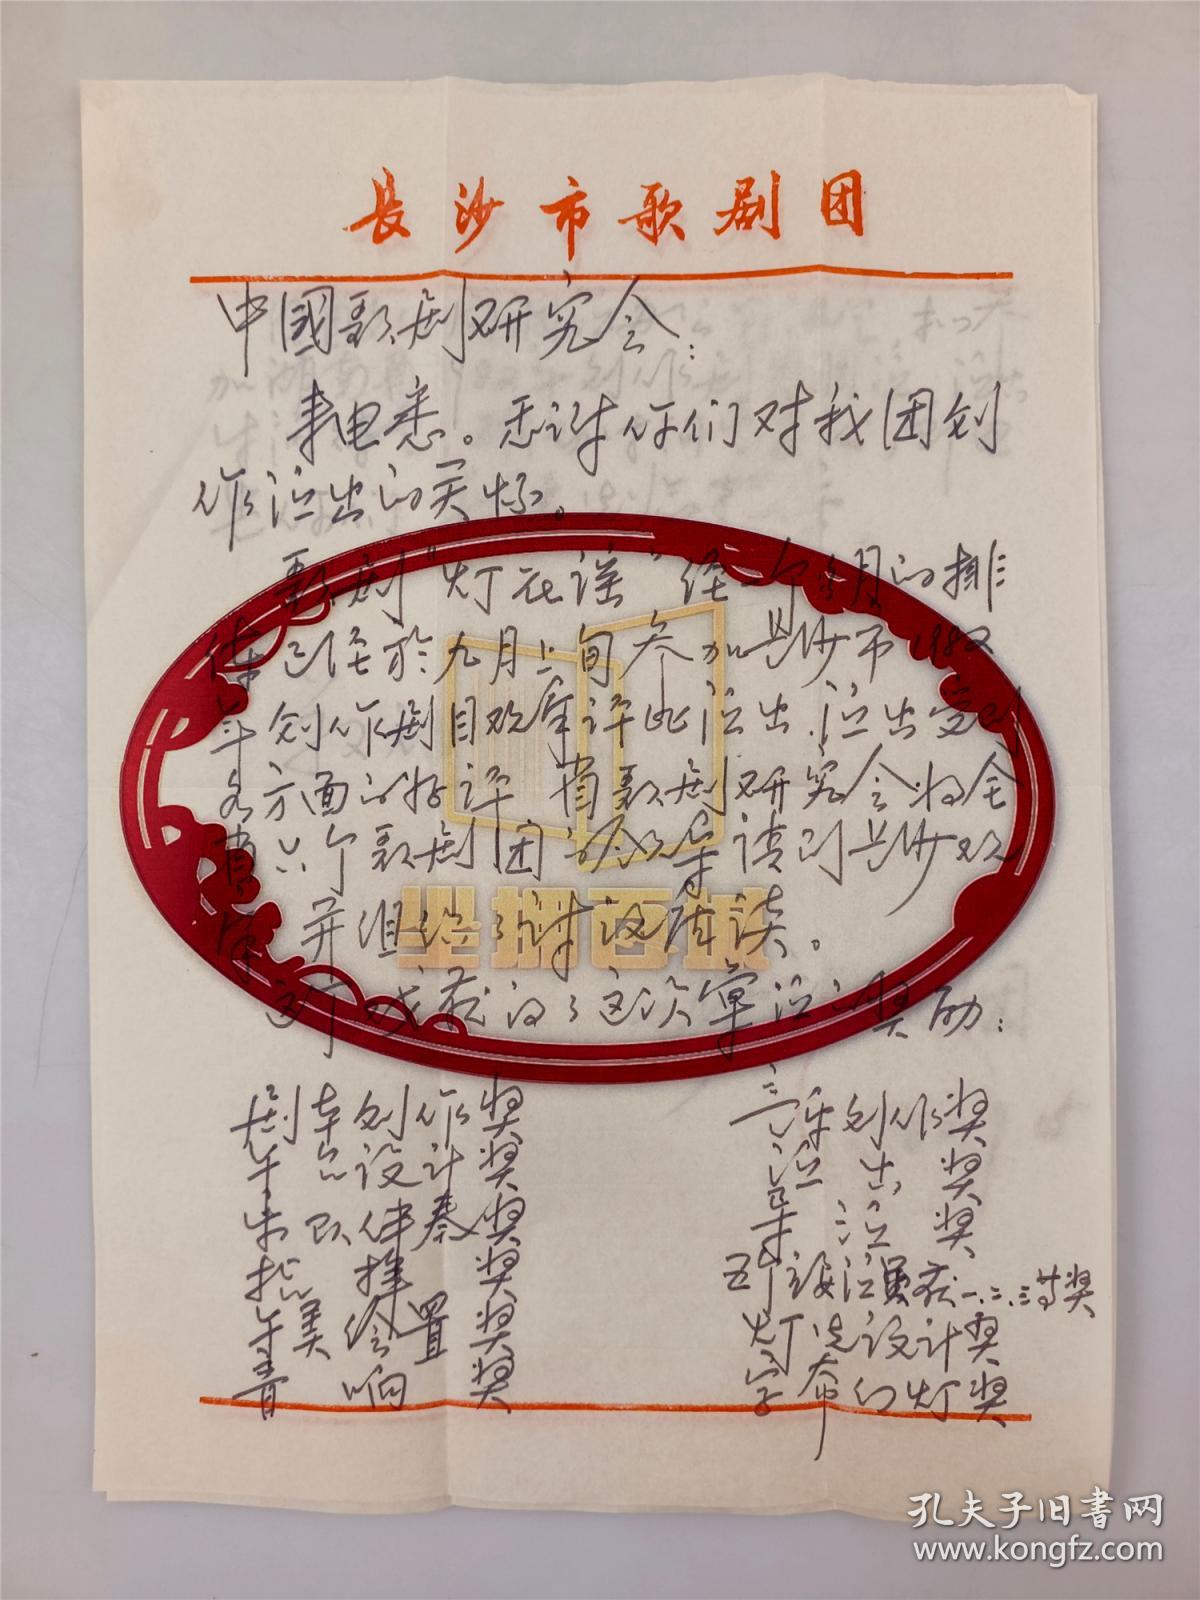 长沙市歌剧团
中國歌剧研究会：
来电悉。感谢你们对我团创
作演出的关怀。
歌剧“灯花谣”经二个多月的排
练已经於九月上旬参加长沙市1982
年创作剧目观摩评比演出，演出受到
各方面的好评 省歌剧研究会将全
省六个歌剧团领导请到长沙观
摩 并组织了讨论座谈。
这个戏获得了这次会演的奖励：
剧本创作奖 音乐创作奖
舞台设计奖 演出奖
乐队伴奏奖 导演奖
指挥奖 五个演员获一.二.三等奖
舞美绘置奖 灯光设计奖
音响奖 字幕幻灯奖
孔夫子旧书网
www.kongfz.com